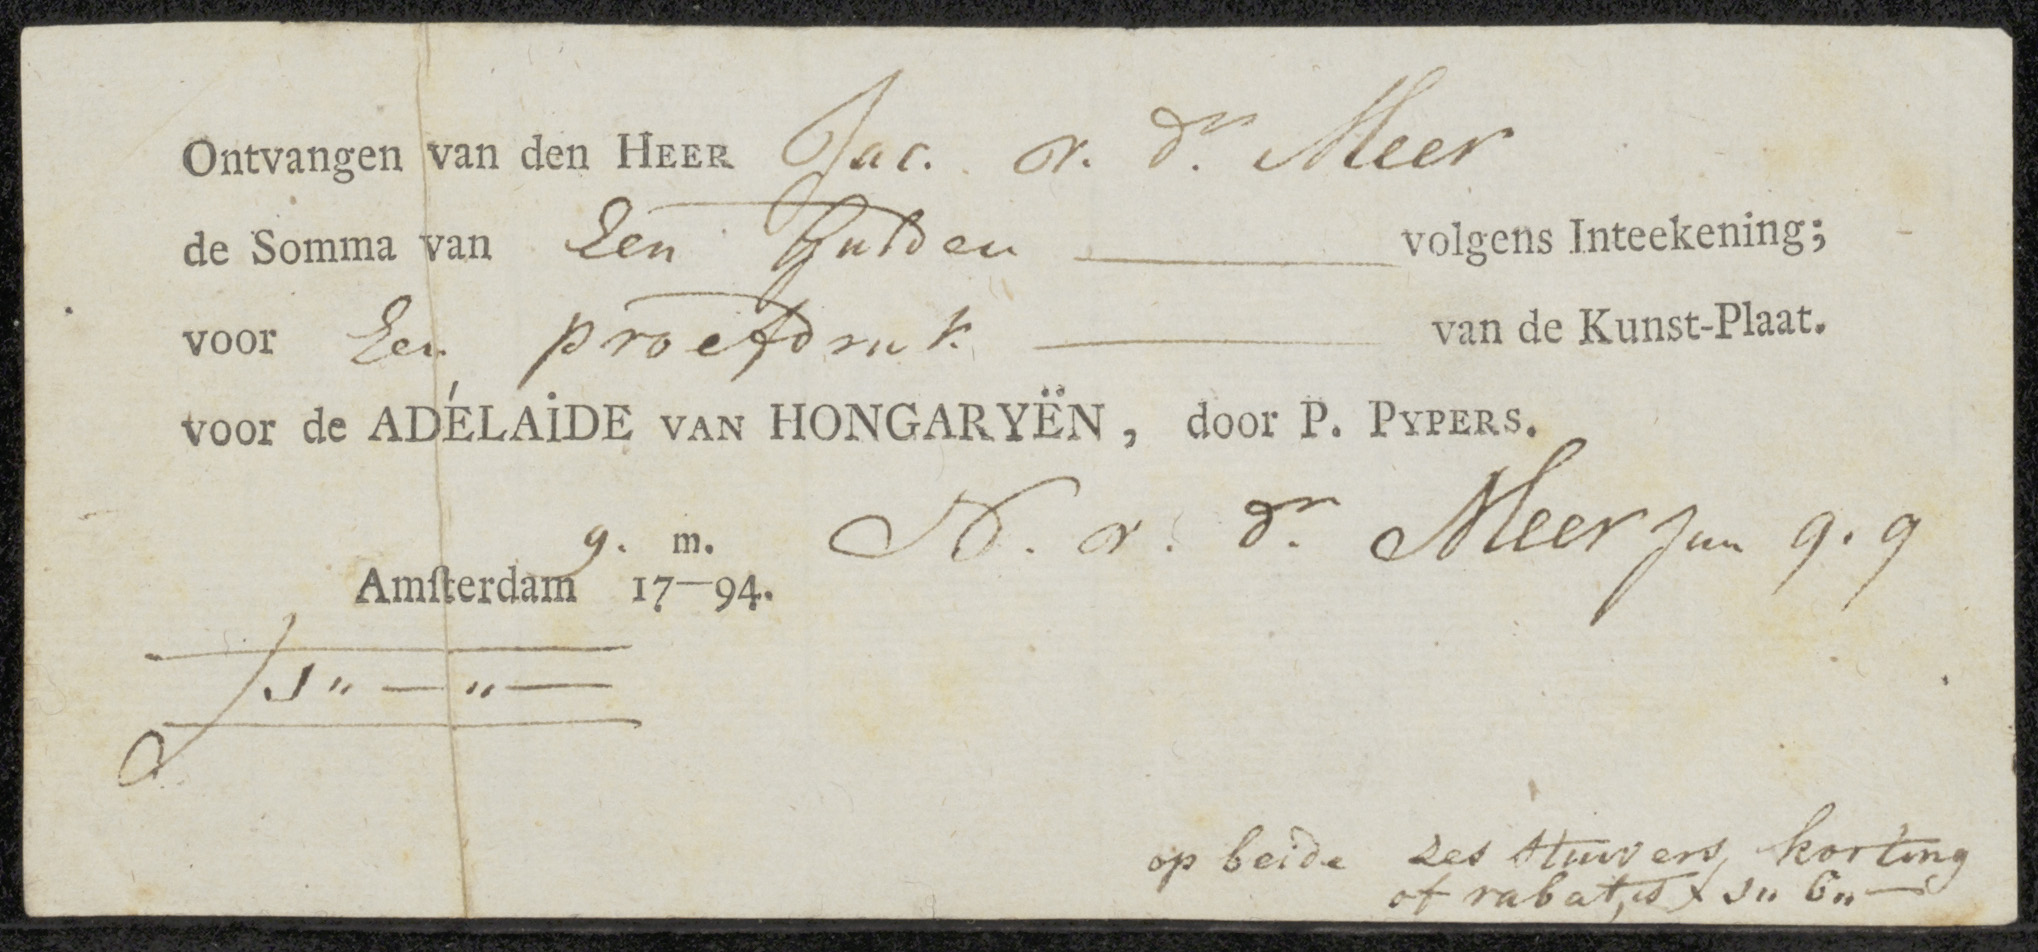 Ontvangen van den HEER Jac. v. dr. Meer
de Somma van Een Gulden volgens Inteekening;
voor Een proefdruk van de Kunst-Plaat.
voor de ADÉLAÏDE VAN HONGARYËN, door P. PYPERS.
9. m. N. v. dr. Meer Jun q.q
Amſterdam 17—94.
ƒ 1„ — „ —
op beide zes stuivers korting
of rabat, is ƒ 1„ 6„ —